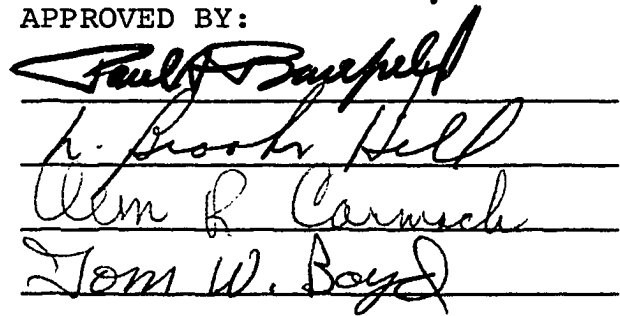 APPROVED BY:
Paul
L. Brooks Hill
Wm R Carmack
Tom W. Boyd